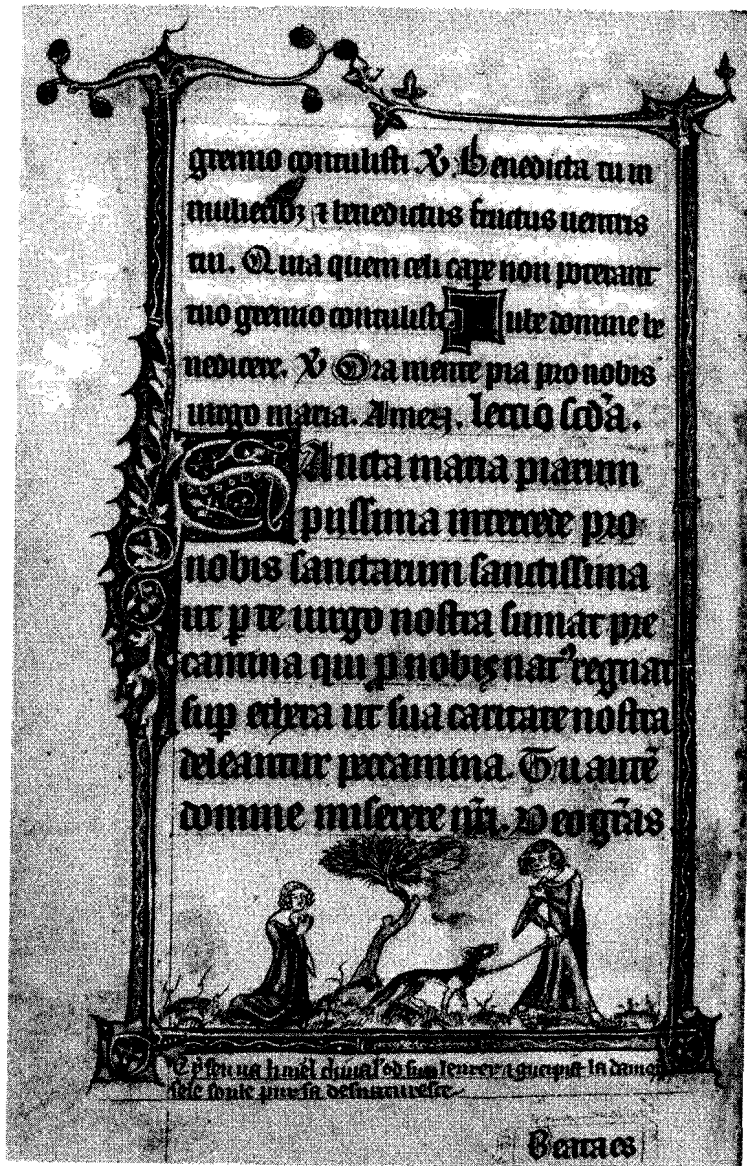 gremio contulisti. V. Benedicta tu in
mulieribꝫ ⁊ benedictus fructus uentris
tui. Quia quem celi cap̄e non poterant
tuo gremio contulisti Iube domne be
nedicere. V Ora mente pia pro nobis
uirgo maria. Amen. lectio scd̄a.
Sancta maria piarum
piissima intercede pro
nobis sanctarum sanctissima
ut ꝑ te uirgo nostra sumat pre
camina qui ꝓ nobis natꝰ regnat
sup̄ ethera ut sua caritate nostra
deleantur peccamina. Tu autē
domine miserere nr̄i. Deo gr̄as
Cy sen ua li ꝟ od sun leurer ⁊ la damoi
sele soule pur sa desnatureste
Beata es